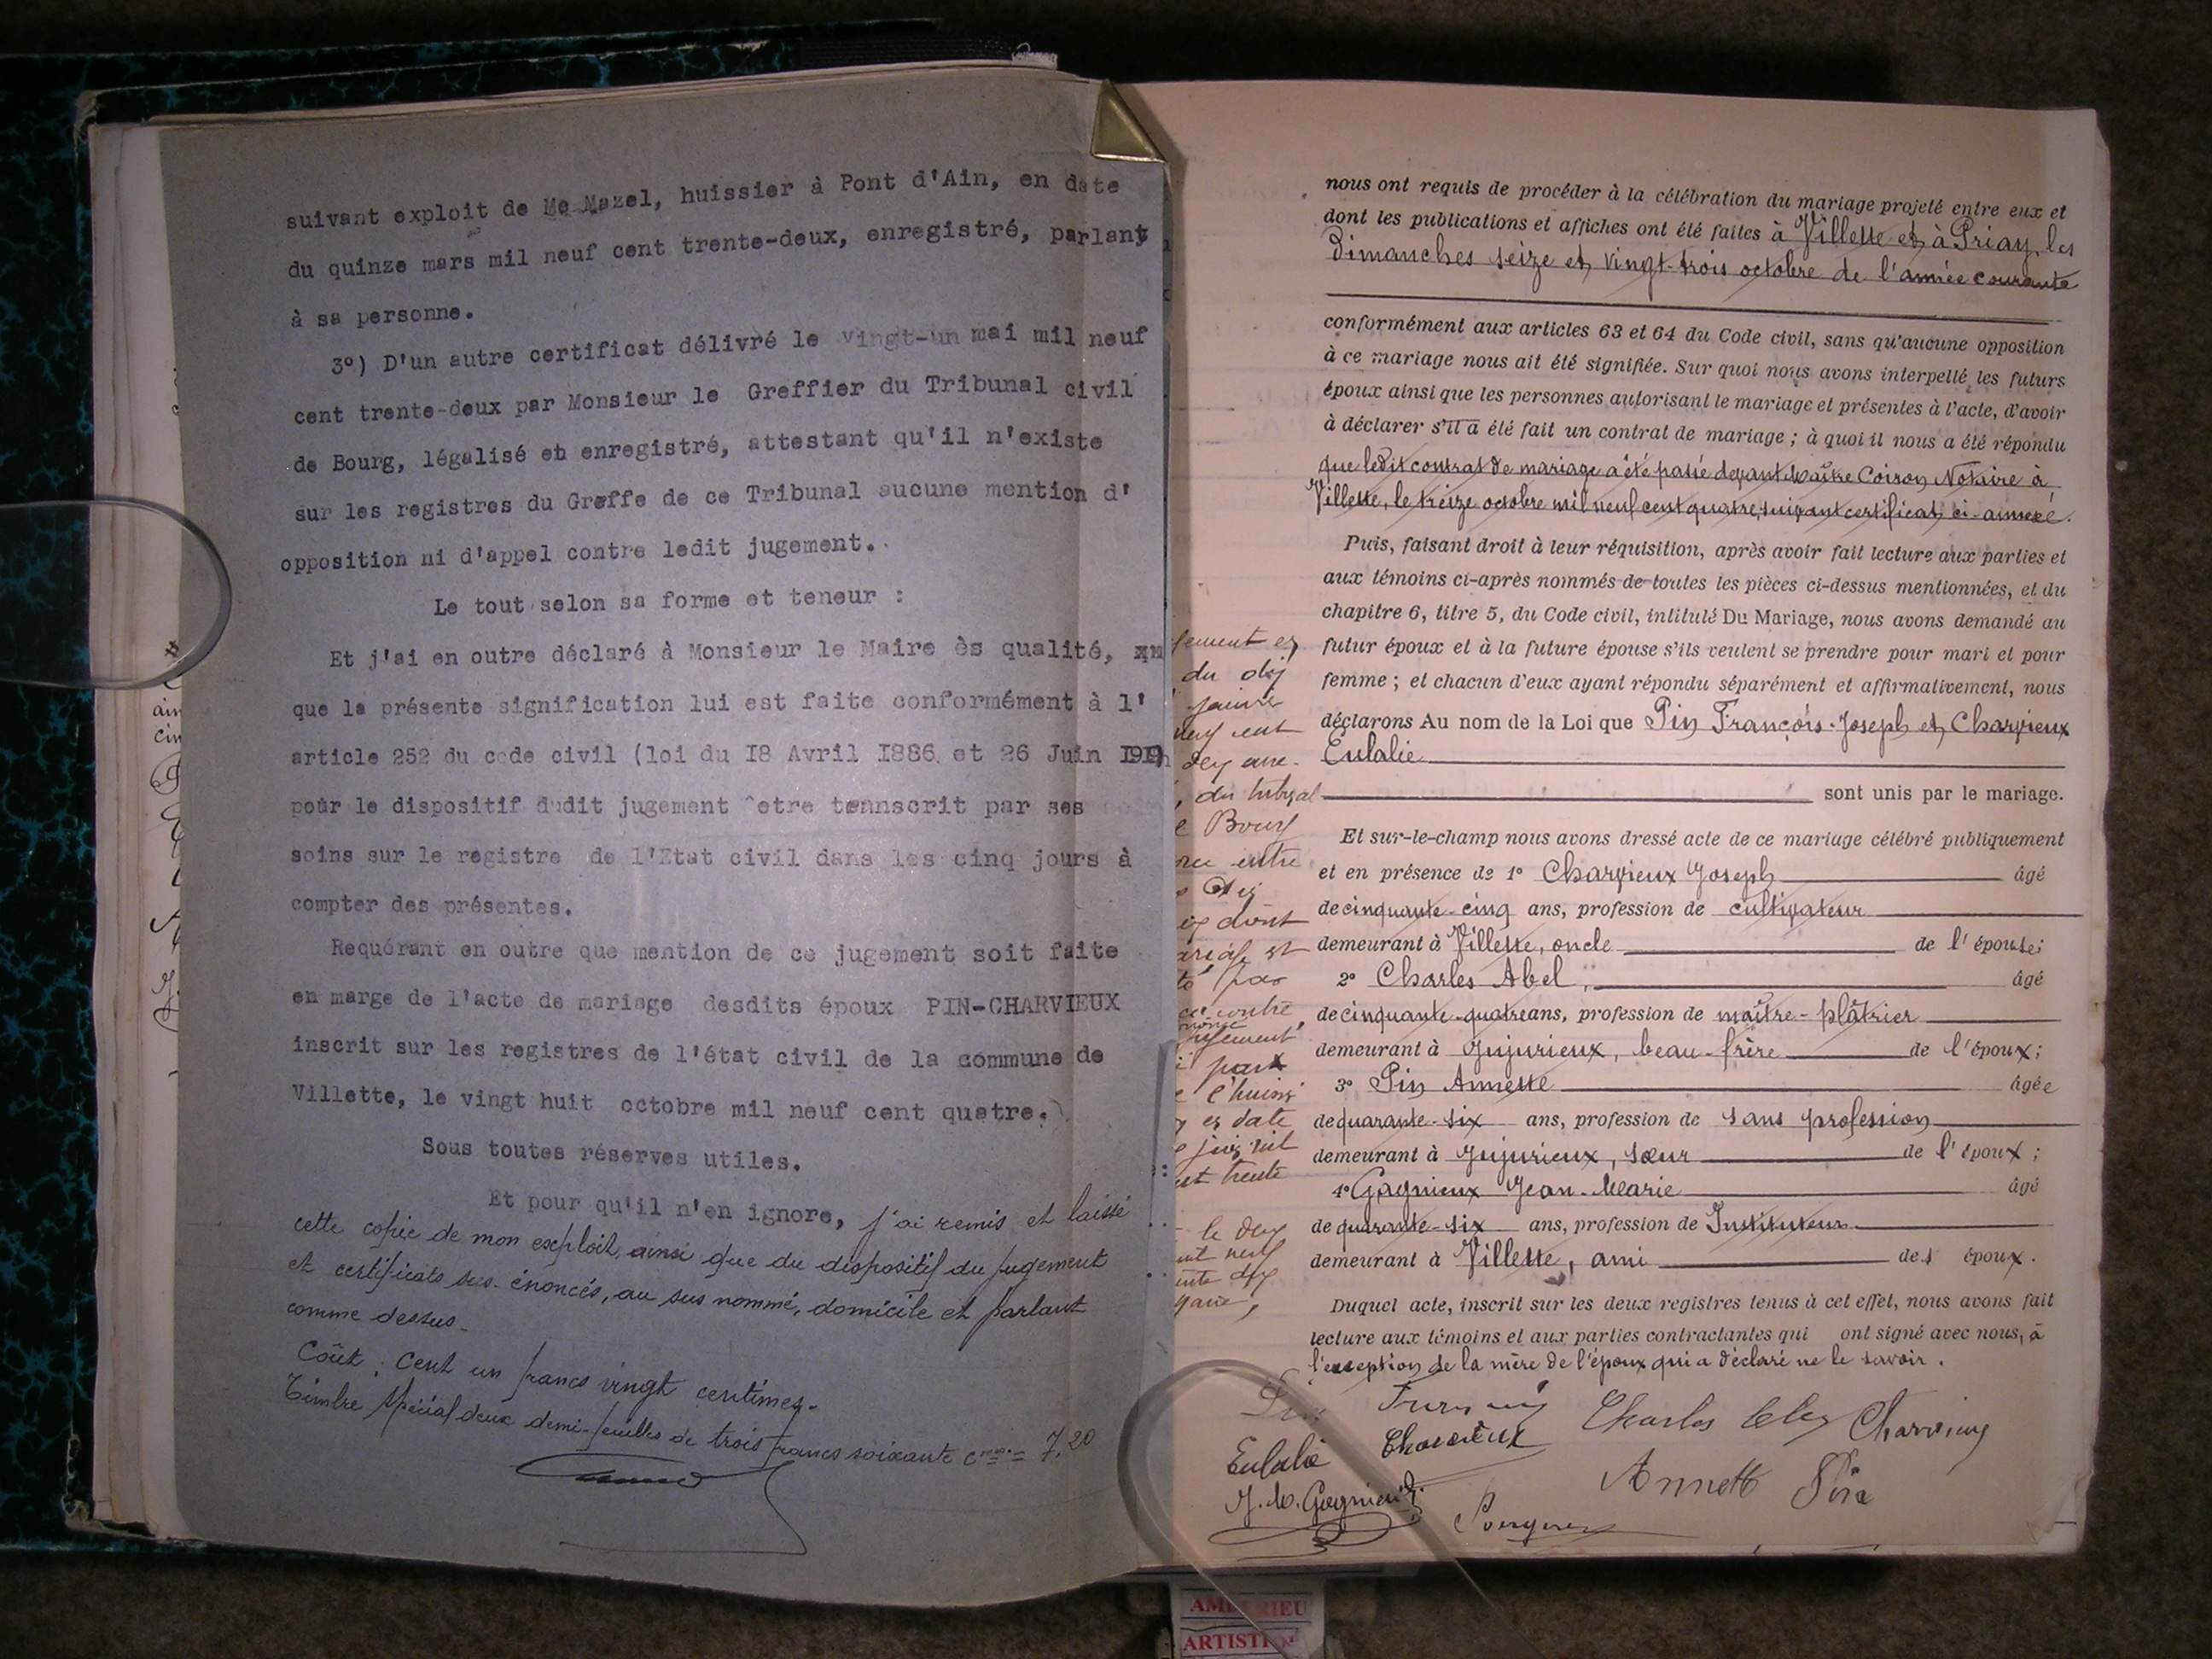 suivant exploit de Me Mazel, huissier à Pont d'Ain, en date
du quinze mars mil neuf cent trente-deux, enregistré, parlant
à sa personne.
3°) D'un autre certificat délivré le vingt-un mai mil neuf
cent trente-deux par Monsieur le Greffier du Tribunal civil
de Bourg, légalisé et enregistré, attestant qu'il n'existe
sur les registres du Greffe de ce Tribunal aucune mention d'
opposition ni d'appel contre ledit jugement.
Le tout selon sa forme et teneur :
Et j'ai en outre déclaré à Monsieur le Maire ès qualité,
que la présente signification lui est faite conformément à l'
article 252 du code civil (loi du I8 Avril I886 et 26 Juin I919)
pour le dispositif dudit jugement ^etre transcrit par ses
soins sur le registre de l'Etat civil dans les cinq jours à
compter des présentes.
Requérant en outre que mention de ce jugement soit faite
en marge de l'acte de mariage desdits époux PIN-CHARVIEUX
inscrit sur les registres de l'état civil de la commune de
Villette, le vingt huit octobre mil neuf cent quatre.
Sous toutes réserves utiles.
Et pour qu'il n'en ignore, j'ai remis et laissé
cette copie de mon exploit, ainsi que du dispositif du jugement
et certificats sus-énoncés, au sus nommé, domicile et parlant
comme dessus_
Coût : Cent un francs vingt centimes.
Timbre spécial deux demi-feuilles de trois francs soixante c = 7,20
du
neuf cent
du tribunal
Bourg
entre
dont
par
contre
jugement
part
l'huissi
date
juin mil
trente
nous ont requis de procéder à la célébration du mariage projeté entre eux et
dont les publications et affiches ont été faites à Villette et à Priay les
Dimanches seize et vingt-trois octobre de l'année courante
conformément aux articles 63 et 64 du Code civil, sans qu'aucune opposition
à ce mariage nous ait été signifiée. Sur quoi nous avons interpellé les futurs
époux ainsi que les personnes autorisant le mariage et présentes à l'acte, d'avoir
à déclarer s'il a été fait un contrat de mariage ; à quoi il nous a été répondu
que ledit contrat de mariage a été passé devant Maître Coiron Notaire à
Villette, le treize octobre mil neuf cent quatre, suivant certificat ci-annexé.
Puis, faisant droit à leur réquisition, après avoir fait lecture aux parties et
aux témoins ci-après nommés de toutes les pièces ci-dessus mentionnées, et du
chapitre 6, titre 5, du Code civil, intitulé Du Mariage, nous avons demandé au
futur époux et à la future épouse s'ils veulent se prendre pour mari et pour
femme ; et chacun d'eux ayant répondu séparément et affirmativement, nous
déclarons Au nom de la Loi que Pin François-Joseph et Charvieux
Eulalie
sont unis par le mariage.
Et sur-le-champ nous avons dressé acte de ce mariage célébré publiquement
et en présence de 1° Charvieux Joseph âgé
de cinquante-cinq ans, profession de cultivateur
demeurant à Villette, oncle de l'épouse;
2° Charles Abel, âgé
de cinquante-quatre ans, profession de maître-plâtrier
demeurant à Jujurieux, beau-frère de l'époux;
3° Pin Annette âgée
de quarante-six ans, profession de sans profession
demeurant à Jujurieux, sœur de l'époux ;
4° Gagnieux Jean-Marie âgé
de quarante-six ans, profession de Instituteur
demeurant à Villette, ami des époux.
Duquel acte, inscrit sur les deux registres tenus à cet effet, nous avons fait
lecture aux témoins et aux parties contractantes qui ont signé avec nous, à
l'exception de la mère de l'époux qui a déclaré ne le savoir.
Pin Charles Abel Charvieux
Eulalie Charvieux Annette Pin
J. M. Gagnieux
AMBERIEU
ARTISTI